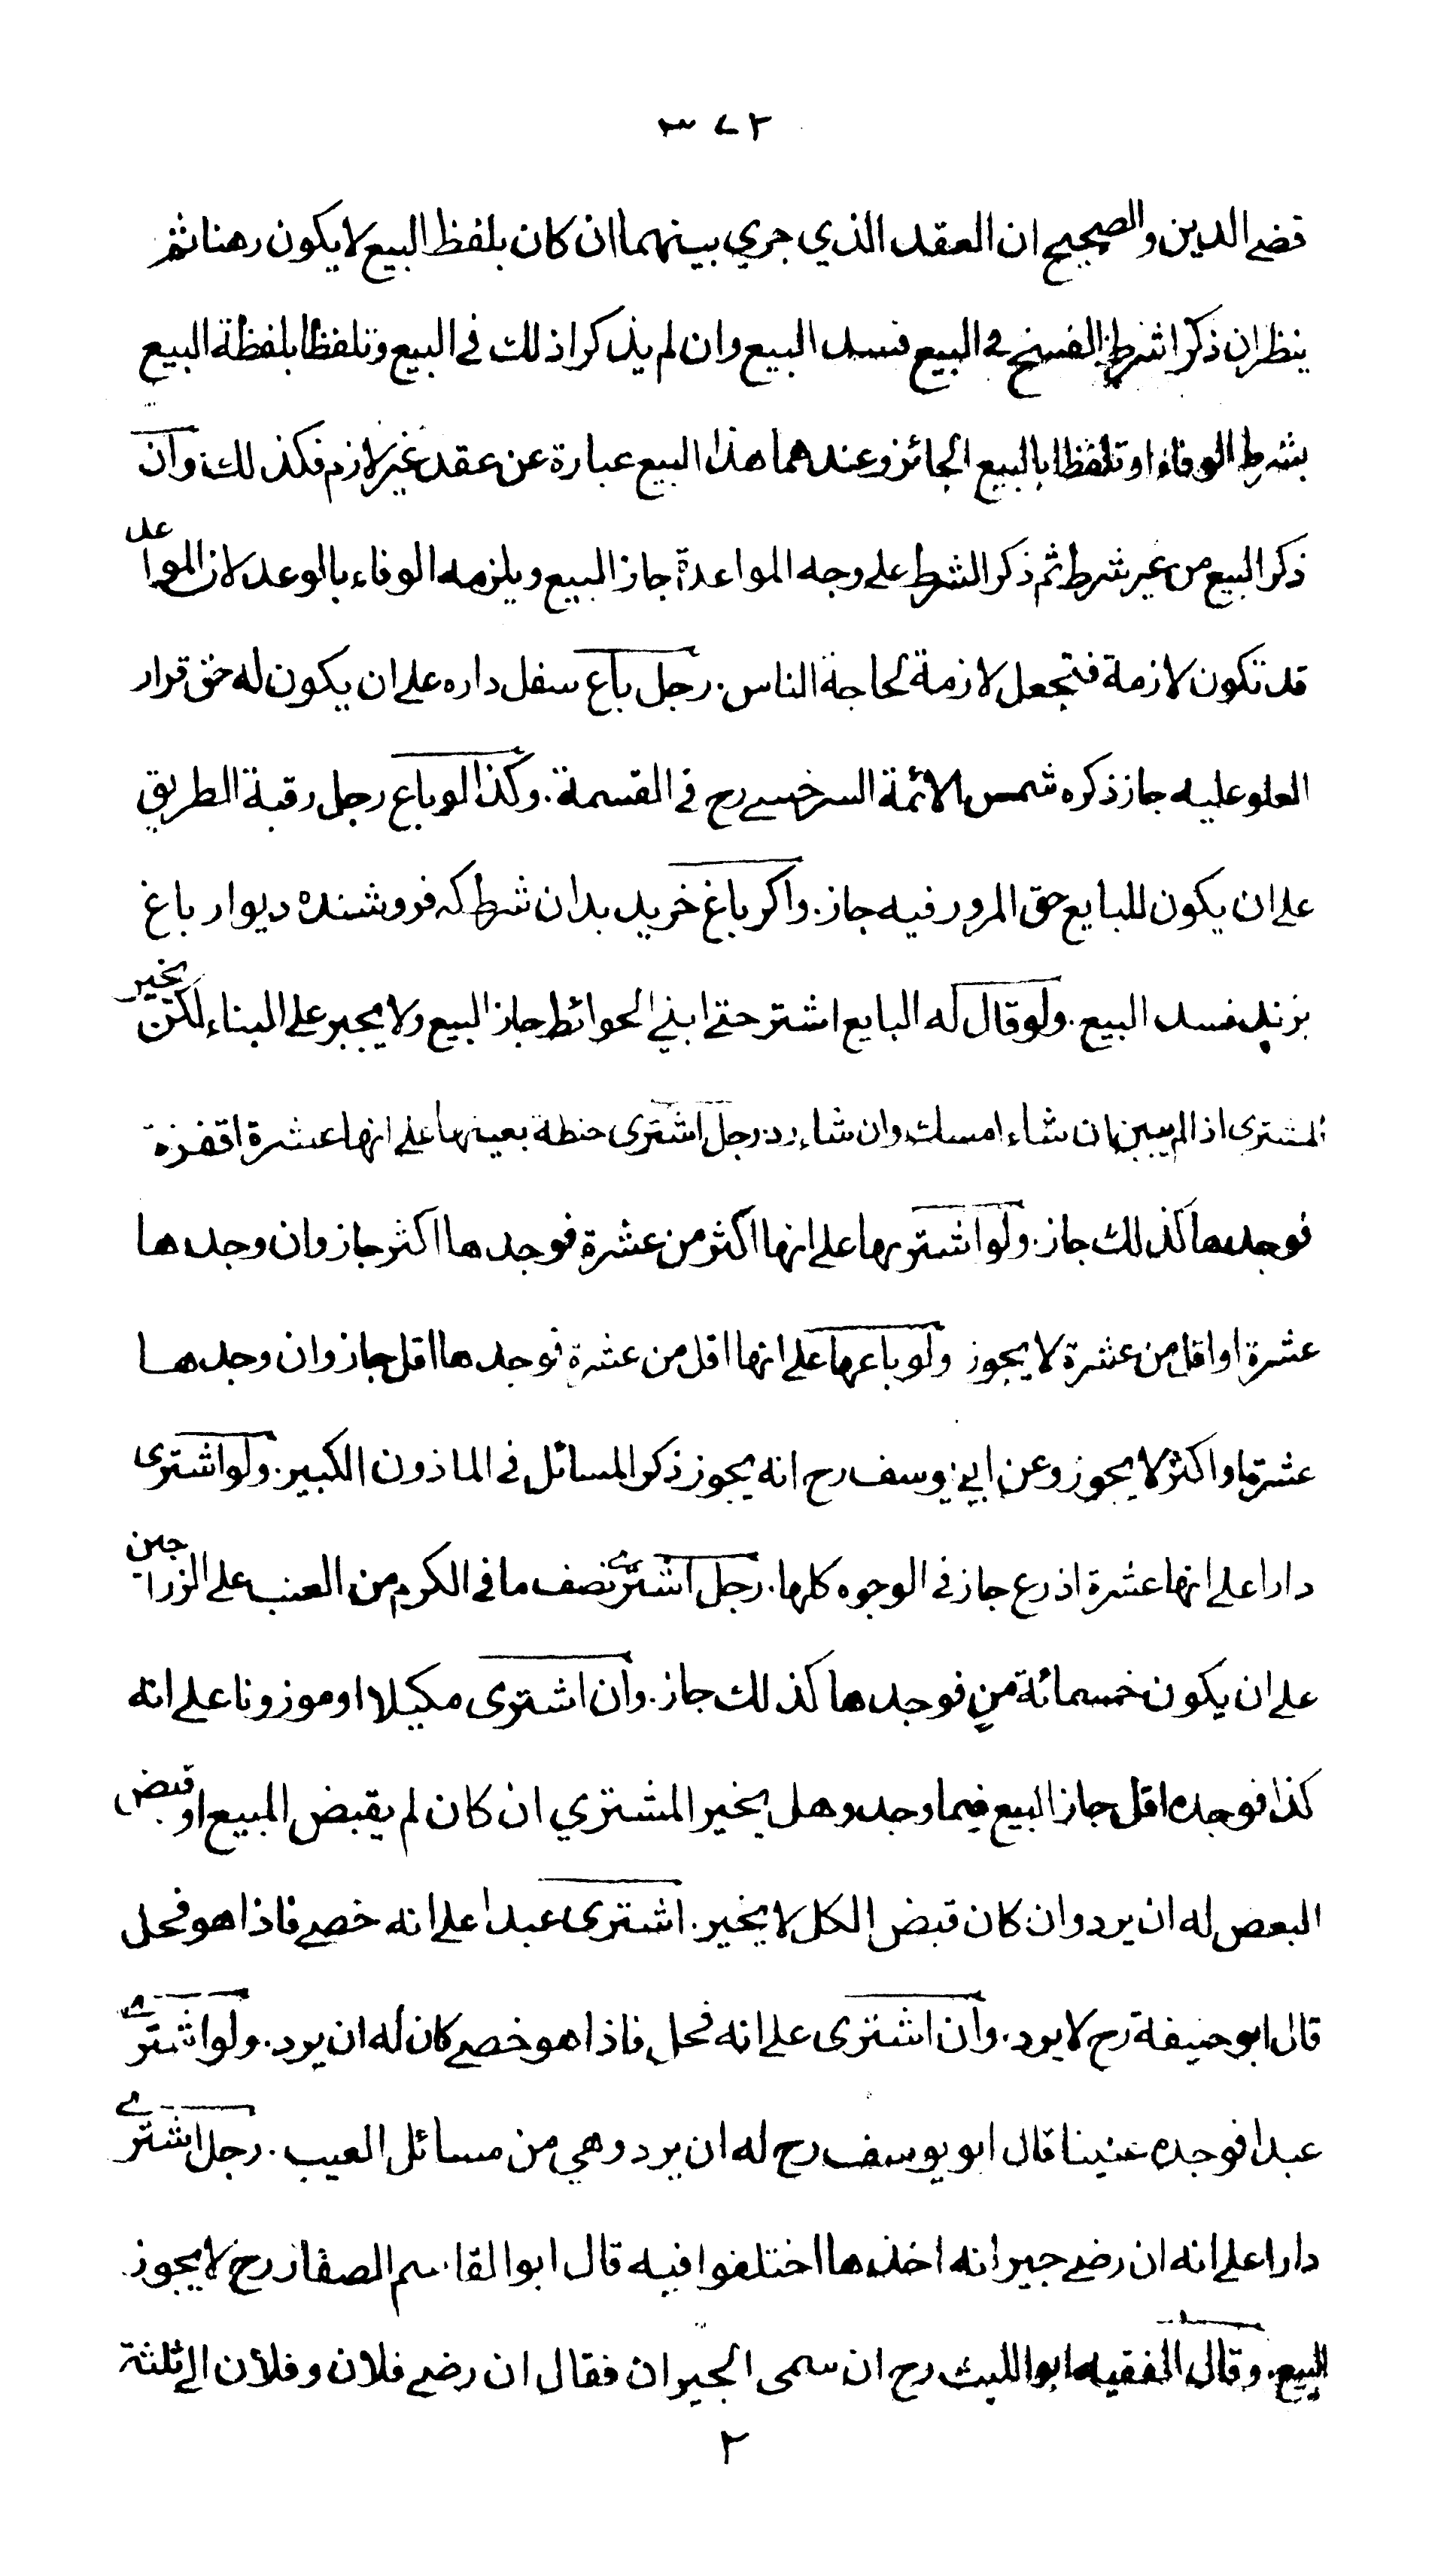 ٣٧٢
قضى الدين والصحيح ان العقد الذي جري بينهما ان كان بلفظ البيع لا يكون رهنا ثم
ينظر ان ذكرا شرط الفسخ فى البيع فسد البيع وان لم يذكرا ذلك فى البيع وتلفظا بلفظة البيع
بشرط الوفاء او تلفظا بالبيع الجائز وعندهما هذا البيع عبارة عن عقد غير لازم فكذلك وان
ذكر البيع من غير شرط ثم ذكر الشرط على وجه المواعدة جاز البيع ويلزمه الوفاء بالوعد لان المواعد
قد تكون لازمة فتجعل لازمة لحاجة الناس . رجل باع سفل داره على ان يكون له حق قرار
العلو عليه جاز ذكره شمس الائمة السرخسى رح فى القسمة . وكذا لو باع رجل رقبة الطريق
على ان يكون للبايع حق المرور فيه جاز . واكر باغ خريد بدان شرط كه فروشنده ديوار باغ
بزند فسد البيع . ولو قال له البايع اشتر حتى ابني الحوائط جاز البيع ولا يجبر على البناء لكن يخير
المشترى اذا لم يبين ان شاء امسك وان شاء رد . رجل اشترى حنطة بعينها على انها عشرة اقفزة
فوجدها كذلك جاز . ولو اشتريها على انها اكثر من عشرة فوجدها اكثر جاز وان وجدها
عشرة او اقل من عشرة لا يجوز ولو باعها على انها اقل من عشرة فوجدها اقل جاز وان وجدها
عشرة او اكثر لا يجوز وعن ابي يوسف رح انه يجوز ذكر المسائل فى الماذون الكبير . ولو اشترى
دارا على انها عشرة اذرع جاز فى الوجوه كلها . رجل اشترى نصف ما فى الكرم من العنب على الزراجين
على ان يكون خمسمائة من فوجدها كذلك جاز . وان اشترى مكيلا او موزونا على انه
كذا فوجده اقل جاز البيع فيما وجد وهل يخير المشتري ان كان لم يقبض المبيع او قبض
البعض له ان يرد وان كان قبض الكل لا يخير . اشترى عبدا على انه خصى فاذا هو فحل
قال ابو حنيفة رح لا يرد . وان اشترى على انه فحل فاذا هو خصى كان له ان يرد . ولو اشترى
عبدا فوجده عنينا قال ابو يوسف رح له ان يرد وهي من مسائل العيب . رجل اشترى
دارا على انه ان رضى جيرانه اخذها اختلفوا فيه قال ابو القاسم الصفار رح لا يجوز
البيع . وقال الفقيه ابو الليث رح ان سمى الجيران فقال ان رضى فلان وفلان الى ثلثة
٢